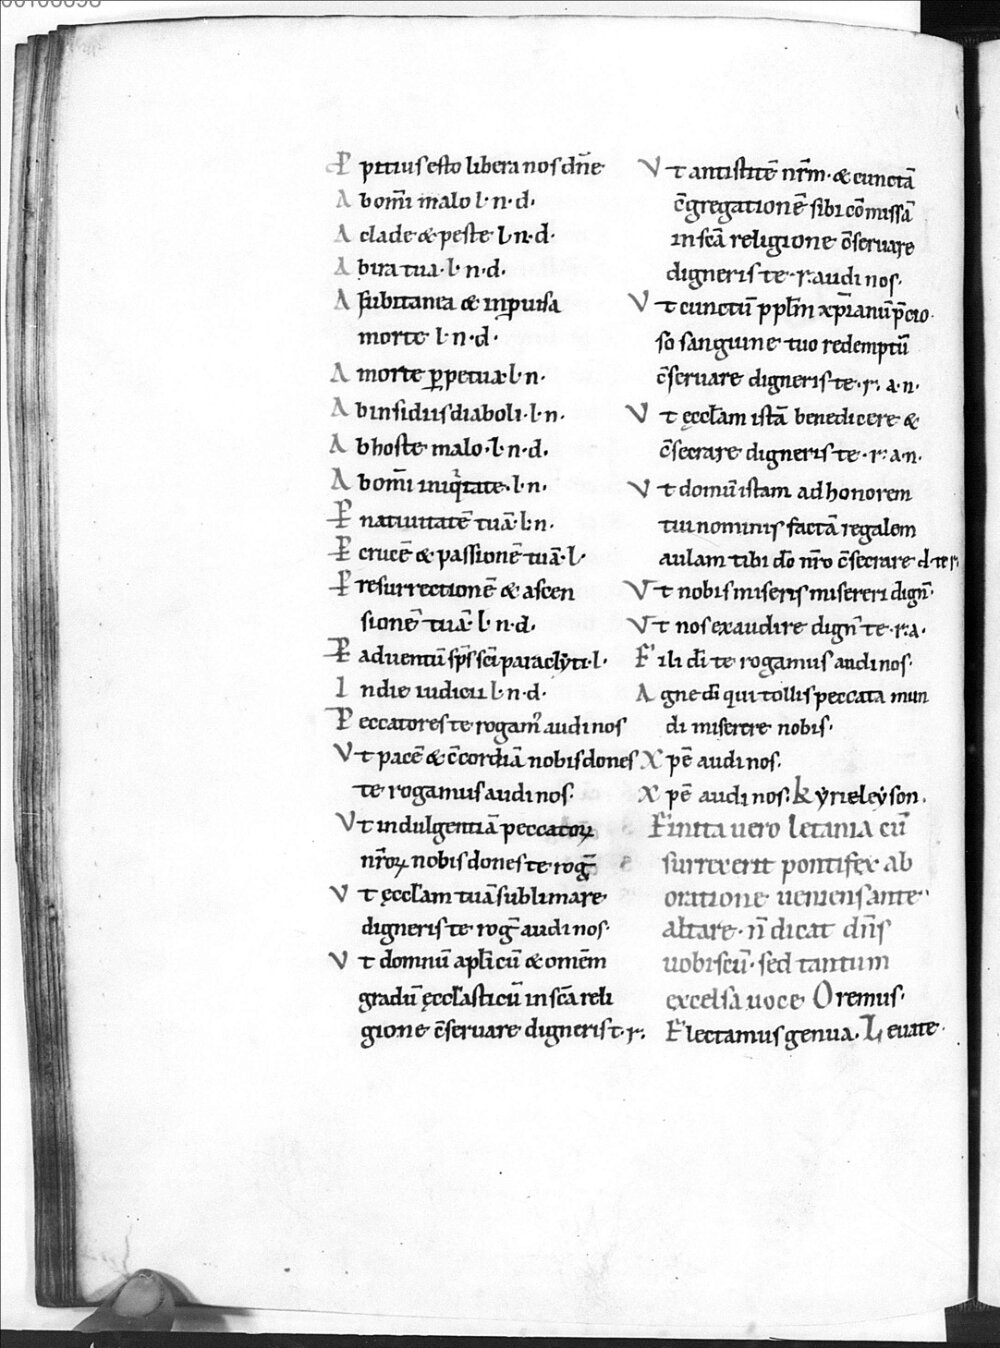 Ꝓ pitius esto libera nos dn̄e
A b om̄i malo l·n·d·
A clade & peste l·n·d·
A b ira tua·l·n·d·
A subitanea & inpuisa
morte l·n·d·
A morte ꝑpetua·l·n·
A b insidiis diaboli·l·n·
A b hoste malo·l·n·d·
A b om̄i iniqͥtate·l·n·
Ꝑ natiuitatē tuā·l·n·
Ꝑ crucē & passionē tuā·l·
Ꝑ resurrectionē & ascen
sionē tuā·l·n·d·
Ꝑ aduentū sp̄s sc̄i paraclyti·l·
I n die iudicii l·n·d·
P eccatores te rogam᷒ audi nos
V t pacē & c̄cordiā nobis dones
te rogamus audi nos·
V t indulgentiā peccatoꝝ
nr̄oꝝ nobis dones te roḡ
V t ęccl̄am tuā sublimare
digneris te roḡ audi nos·
V t domnū apl̄icū & om̄em
gradū ęccl̄asticū in sc̄a reli
gione c̄seruare digneris t·r·
V t antistitē nr̄m·& cunctā
c̄gregationē sibi cōmissā
in sc̄a religione c̄seruare
digneris te·r·audi nos·
V t cunctū ppl̄m xp̄ianū p̄cio
so sanguine tuo redemptū
c̄seruare digneris te·r·a·n·
V t ęccl̄am istā benedicere &
c̄secrare digneris te·r·a·n·
V t domū istam ad honorem
tui nominis factā regalem
aulam tibi dō nr̄o c̄secrare d·te r·
V t nobis miseris misereri dign̄·
V t nos exaudire dign̄ te·r·a·
F ili dī te rogamus audi nos·
A gne dī qui tollis peccata mun
di miserere nobis·
X pē audi nos·
X pē audi nos·Kyrieleyson·
Finita uero letania cū
surrexerit pontifex ab
oratione ueniens ante
altare·n̄ dicat dn̄s
uobiscū·sed tantum
excelsa uoce Oremus·
Flectamus genua·Leuate·